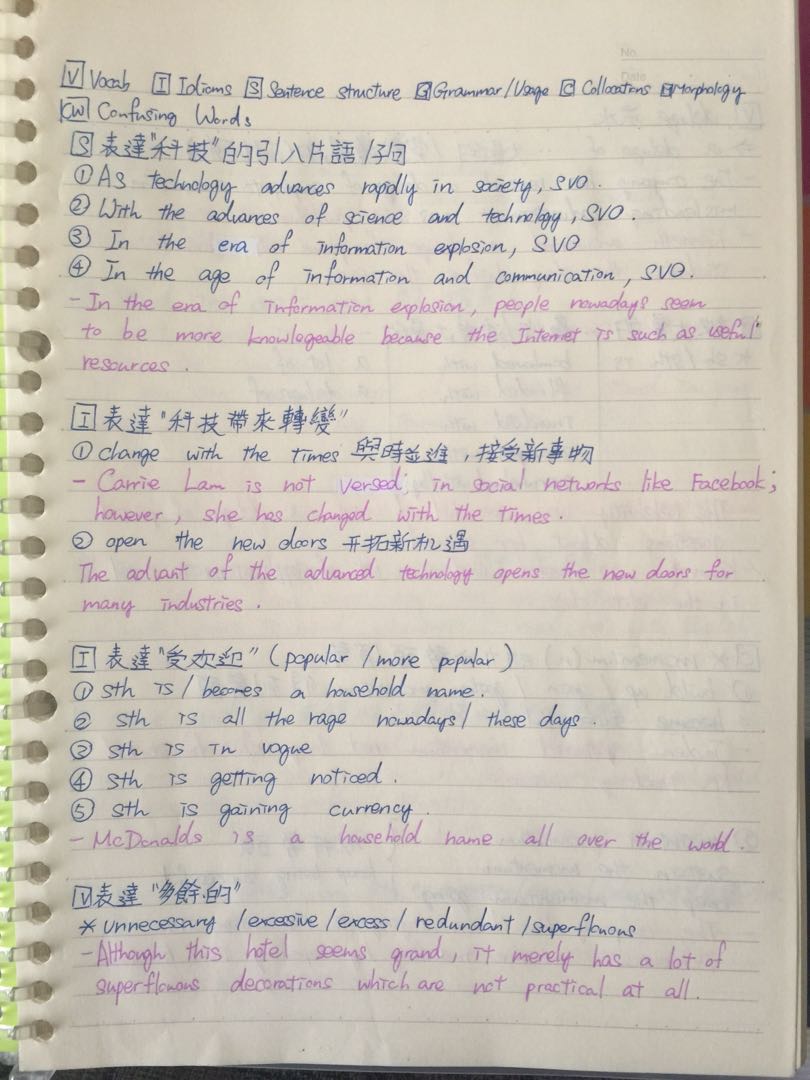 No.
Date
V Vocab I Idioms S Sentence structure G Grammar/Usage C Collocations M Morphology
CW Confusing Words
S 表達"科技"的引入片語/子句
① As technology advances rapidly in society, SVO.
② With the advances of science and technology, SVO.
③ In the era of information explosion, SVO
④ In the age of information and communication, SVO.
- In the era of information explosion, people nowadays seem
to be more knowlegeable because the Internet is such as useful
resources.
I 表達"科技帶來轉變"
① change with the times 與時並進,接受新事物
- Carrie Lam is not versed in social networks like Facebook;
however, she has changed with the times.
② open the new doors 开拓新机遇
The advant of the advanced technology opens the new doors for
many industries.
I 表達"受欢迎" (popular/more popular)
① sth is/becomes a household name.
② sth is all the rage nowadays/these days.
③ sth is in vogue
④ sth is getting noticed.
⑤ sth is gaining currency.
- McDonalds is a household name all over the world.
V 表達"多餘的"
* unnecessary/excessive/excess/redundant/superfluous
- Although this hotel seems grand, it merely has a lot of
superfluous decorations which are not practical at all.